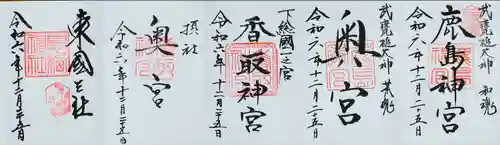 武甕槌大神 和魂
鹿島神宮
令和六年十二月二十五日
武甕槌大神 荒魂
奥宮
令和六年十二月二十五日
下総國一之宮
香取神宮
令和六年十二月二十五日
摂社
奥宮
令和六年十二月二十五日
東國三社
令和六年十二月二十五日